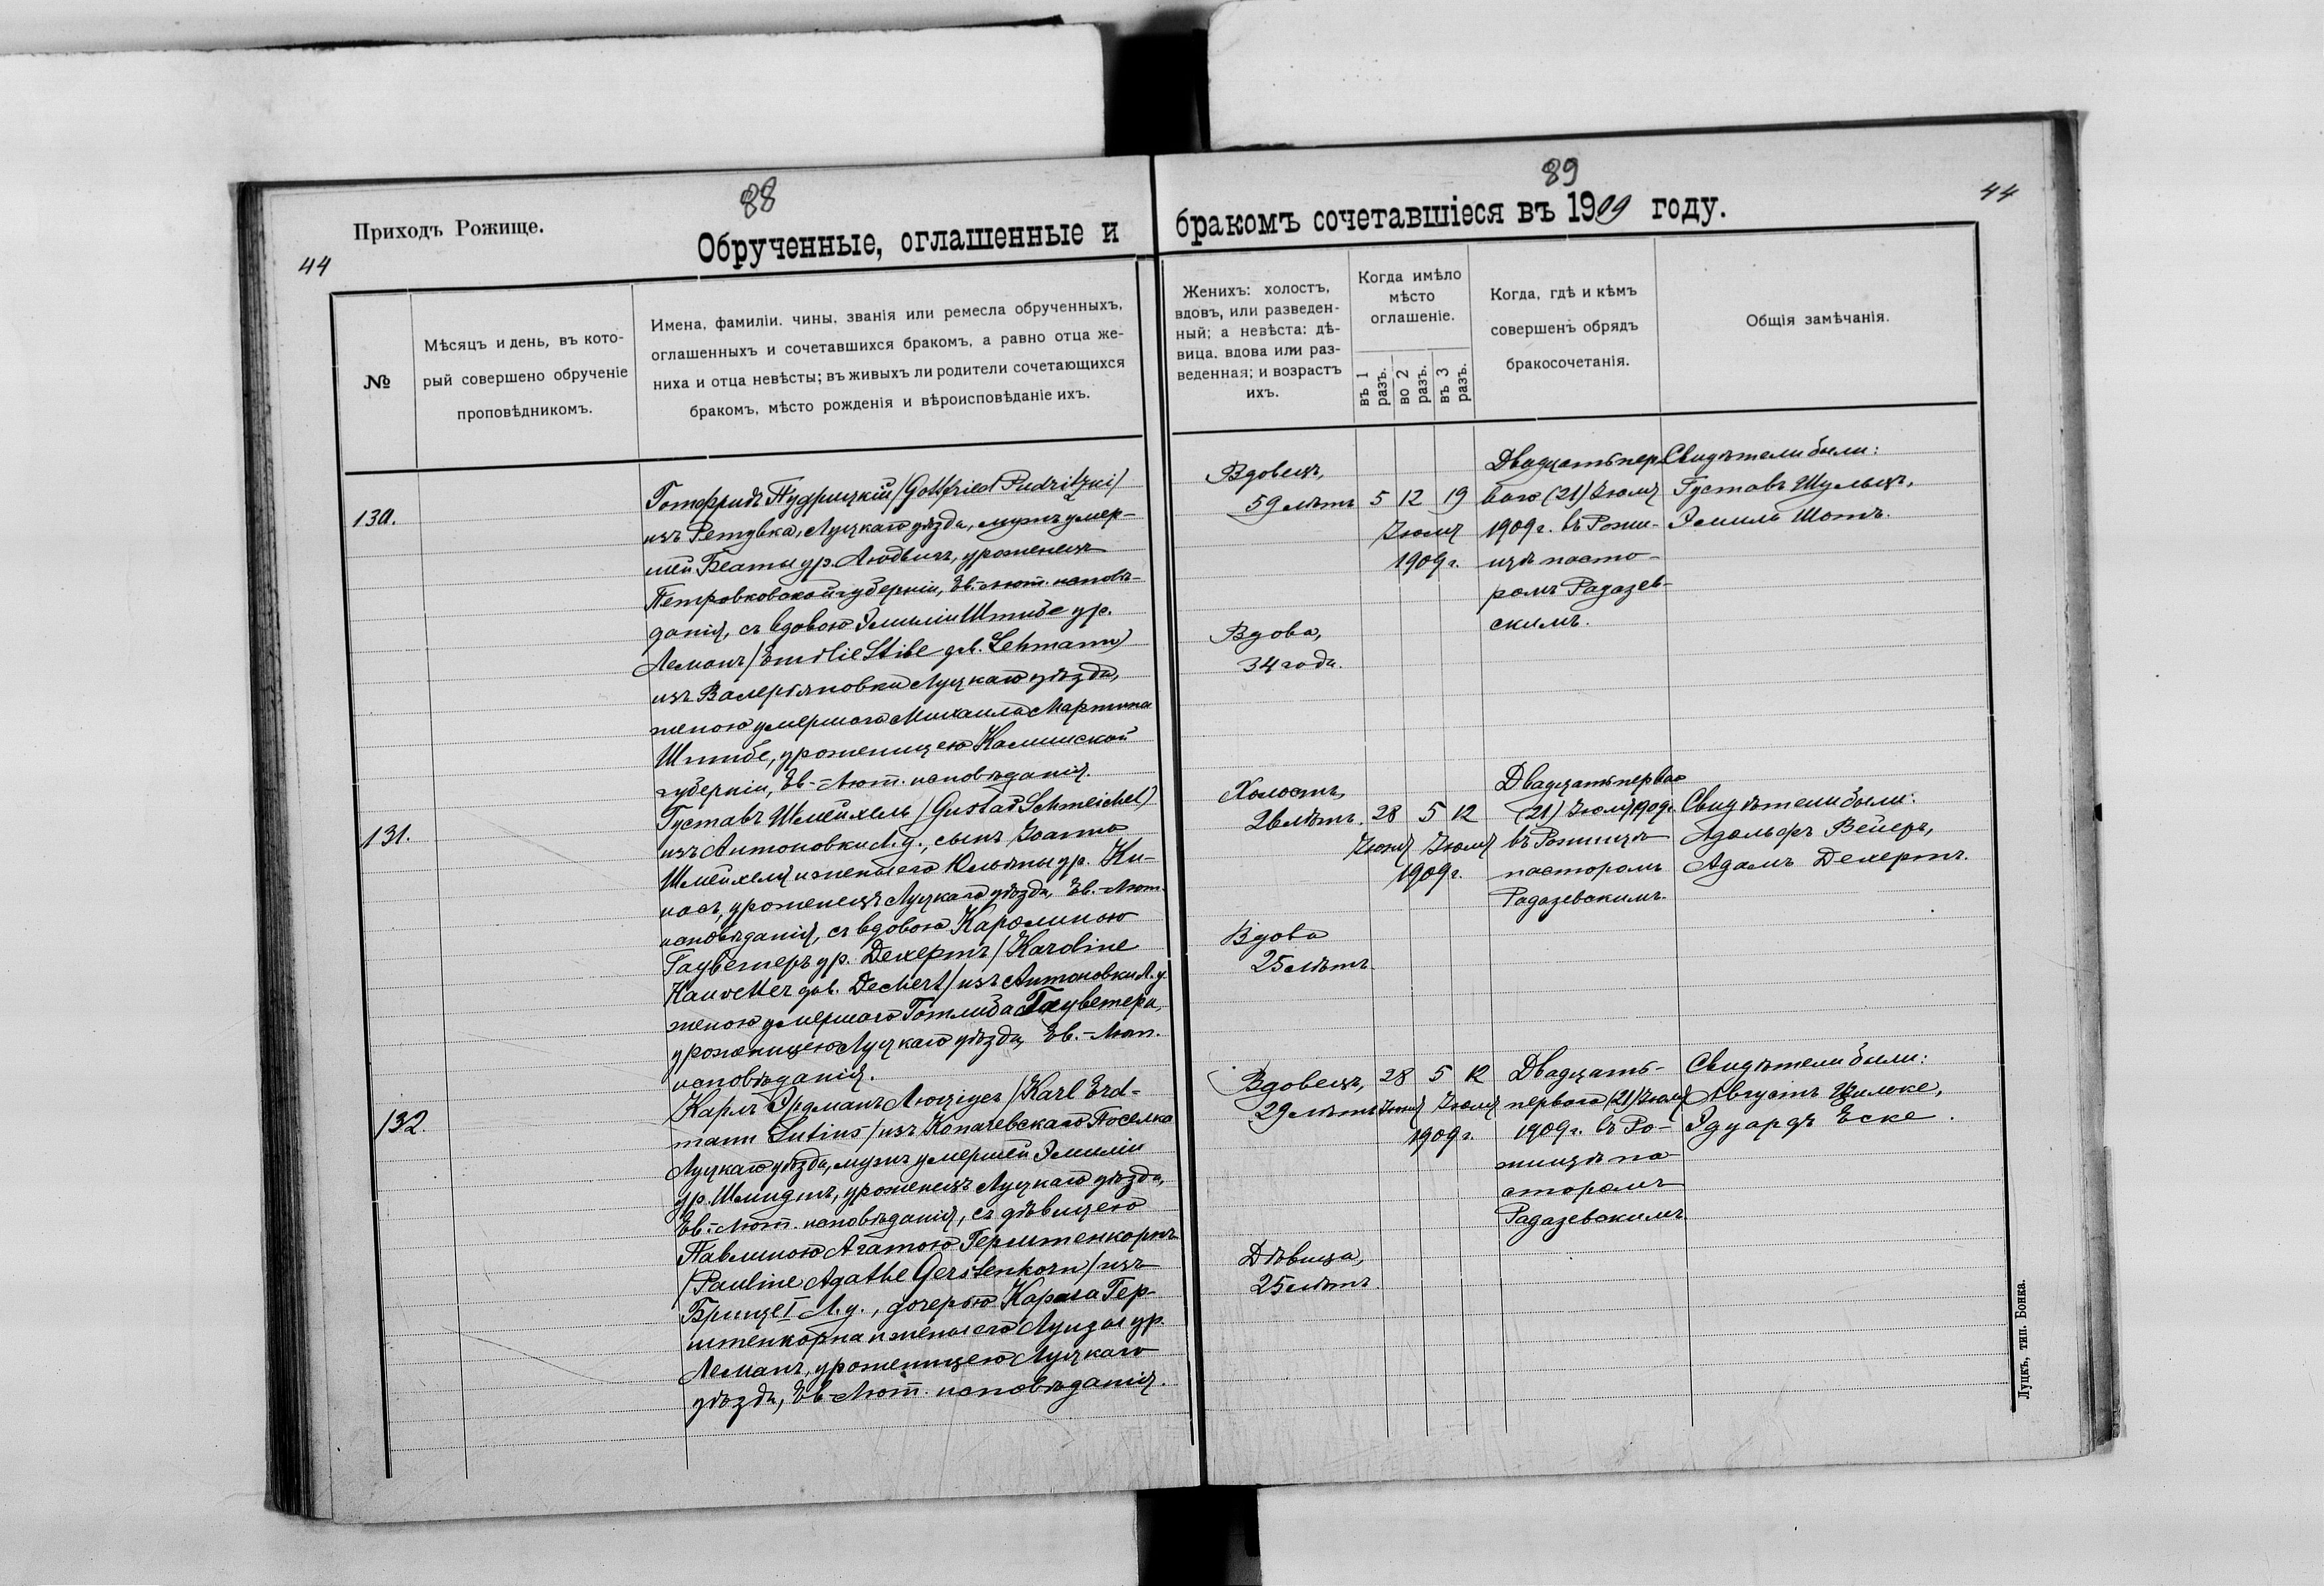 88
Приходъ Рожище.
44
Обрученные, оглашенные и
№
Мѣсяцъ и день, въ кото-
рый совершено обрученіе
проповѣдникомъ.
Имена, фамиліи, чины, званія или ремесла обрученныхъ,
оглашенныхъ и сочетавшихся бракомъ, а равно отца же-
ниха и отца невѣсты; въ живыхъ ли родители сочетающихся
бракомъ, мѣсто рожденія и вѣроисповѣданіе ихъ.
130.
Готфридъ Пудрицкій /Gottfried Pudritzki/
изъ Ретувка, Луцкаго уѣзда, мужъ умер-
шей Беаты ур. Людвигъ, уроженецъ
Петровковской губерніи, Ев.-Лют. исповѣ-
данія, съ вдовою Эмиліи Штибе ур.
Леманъ /Emilie Stibe geb. Lehmann/
изъ Валеріяновки Луцкаго уѣзда,
женою умершаго Михаила Мартина
Штибе, уроженицею Калишской
губерніи, Ев.-Лют. исповѣданія.
131.
Густавъ Шмейхель /Gustav Schmeichel/
изъ Антоновки Л. у., сынъ Іоанна
Шмейхеля и жены его Юльяны ур. Ки-
насъ, уроженецъ Луцкаго уѣзда, Ев.-Лют.
исповѣданія, съ вдовою Каролиною
Гауветеръ ур. Дехертъ /Karoline
Hauvetter geb. Dechert/ изъ Антоновки Л. у.
женою умершаго Готлиба Гауветера,
уроженицею Луцкаго уѣзда, Ев.-Лют.
исповѣданія.
132.
Карлъ Эрдманъ Люціусъ /Karl Erd-
mann Lutius/ изъ Копачевскаго Поселка
Луцкаго уѣзда, мужъ умершей Эмиліи
ур. Шмидтъ, уроженецъ Луцкаго уѣзда,
Ев.-Лют. исповѣданія, съ дѣвицею
Павлиною Агатою Герштенкорнъ
/Pauline Agathe Gerstenkorn/ изъ
Брище I Л. у., дочерью Карла Гер-
штенкорна и жены его Луизы ур.
Леманъ, уроженицею Луцкаго
уѣзда, Ев.-Лют. исповѣданія.
89
44
бракомъ сочетавшіеся въ 1909 году.
Женихъ: холостъ,
вдовъ, или разведен-
ный; а невѣста: дѣ-
вица, вдова или раз-
веденная; и возрастъ
ихъ.
Когда имѣло
мѣсто
оглашеніе.
въ 1 разъ.
во 2 разъ.
въ 3 разъ.
Когда, гдѣ и кѣмъ
совершенъ обрядъ
бракосочетанія.
Общія замѣчанія.
Вдовецъ,
59 лѣтъ
5 12 19
Іюля
1909 г.
Двадцать пер-
ваго (21) Іюля
1909 г. въ Рожи-
щѣ пасто-
ромъ Радазев-
скимъ.
Свидѣтели были:
Густавъ Шульцъ,
Эмиль Шотъ.
Вдова,
34 года.
Холостъ,
26 лѣтъ.
28 5 12
Іюня Іюля
1909 г.
Двадцать перваго
(21) Іюля 1909 г.
въ Рожищѣ
пасторомъ
Радазевскимъ.
Свидѣтели были:
Адольфъ Вейеръ,
Адамъ Дехертъ.
Вдова
25 лѣтъ.
Вдовецъ,
29 лѣтъ
28 5 12
Іюня Іюля
1909 г.
Двадцать-
перваго (21) Іюля
1909 г. въ Ро-
жищѣ па
сторомъ
Радазевскимъ.
Свидѣтели были:
Августъ Цилке,
Эдуардъ Еске.
Дѣвица,
25 лѣтъ.
Луцкъ, тип. Бонка.